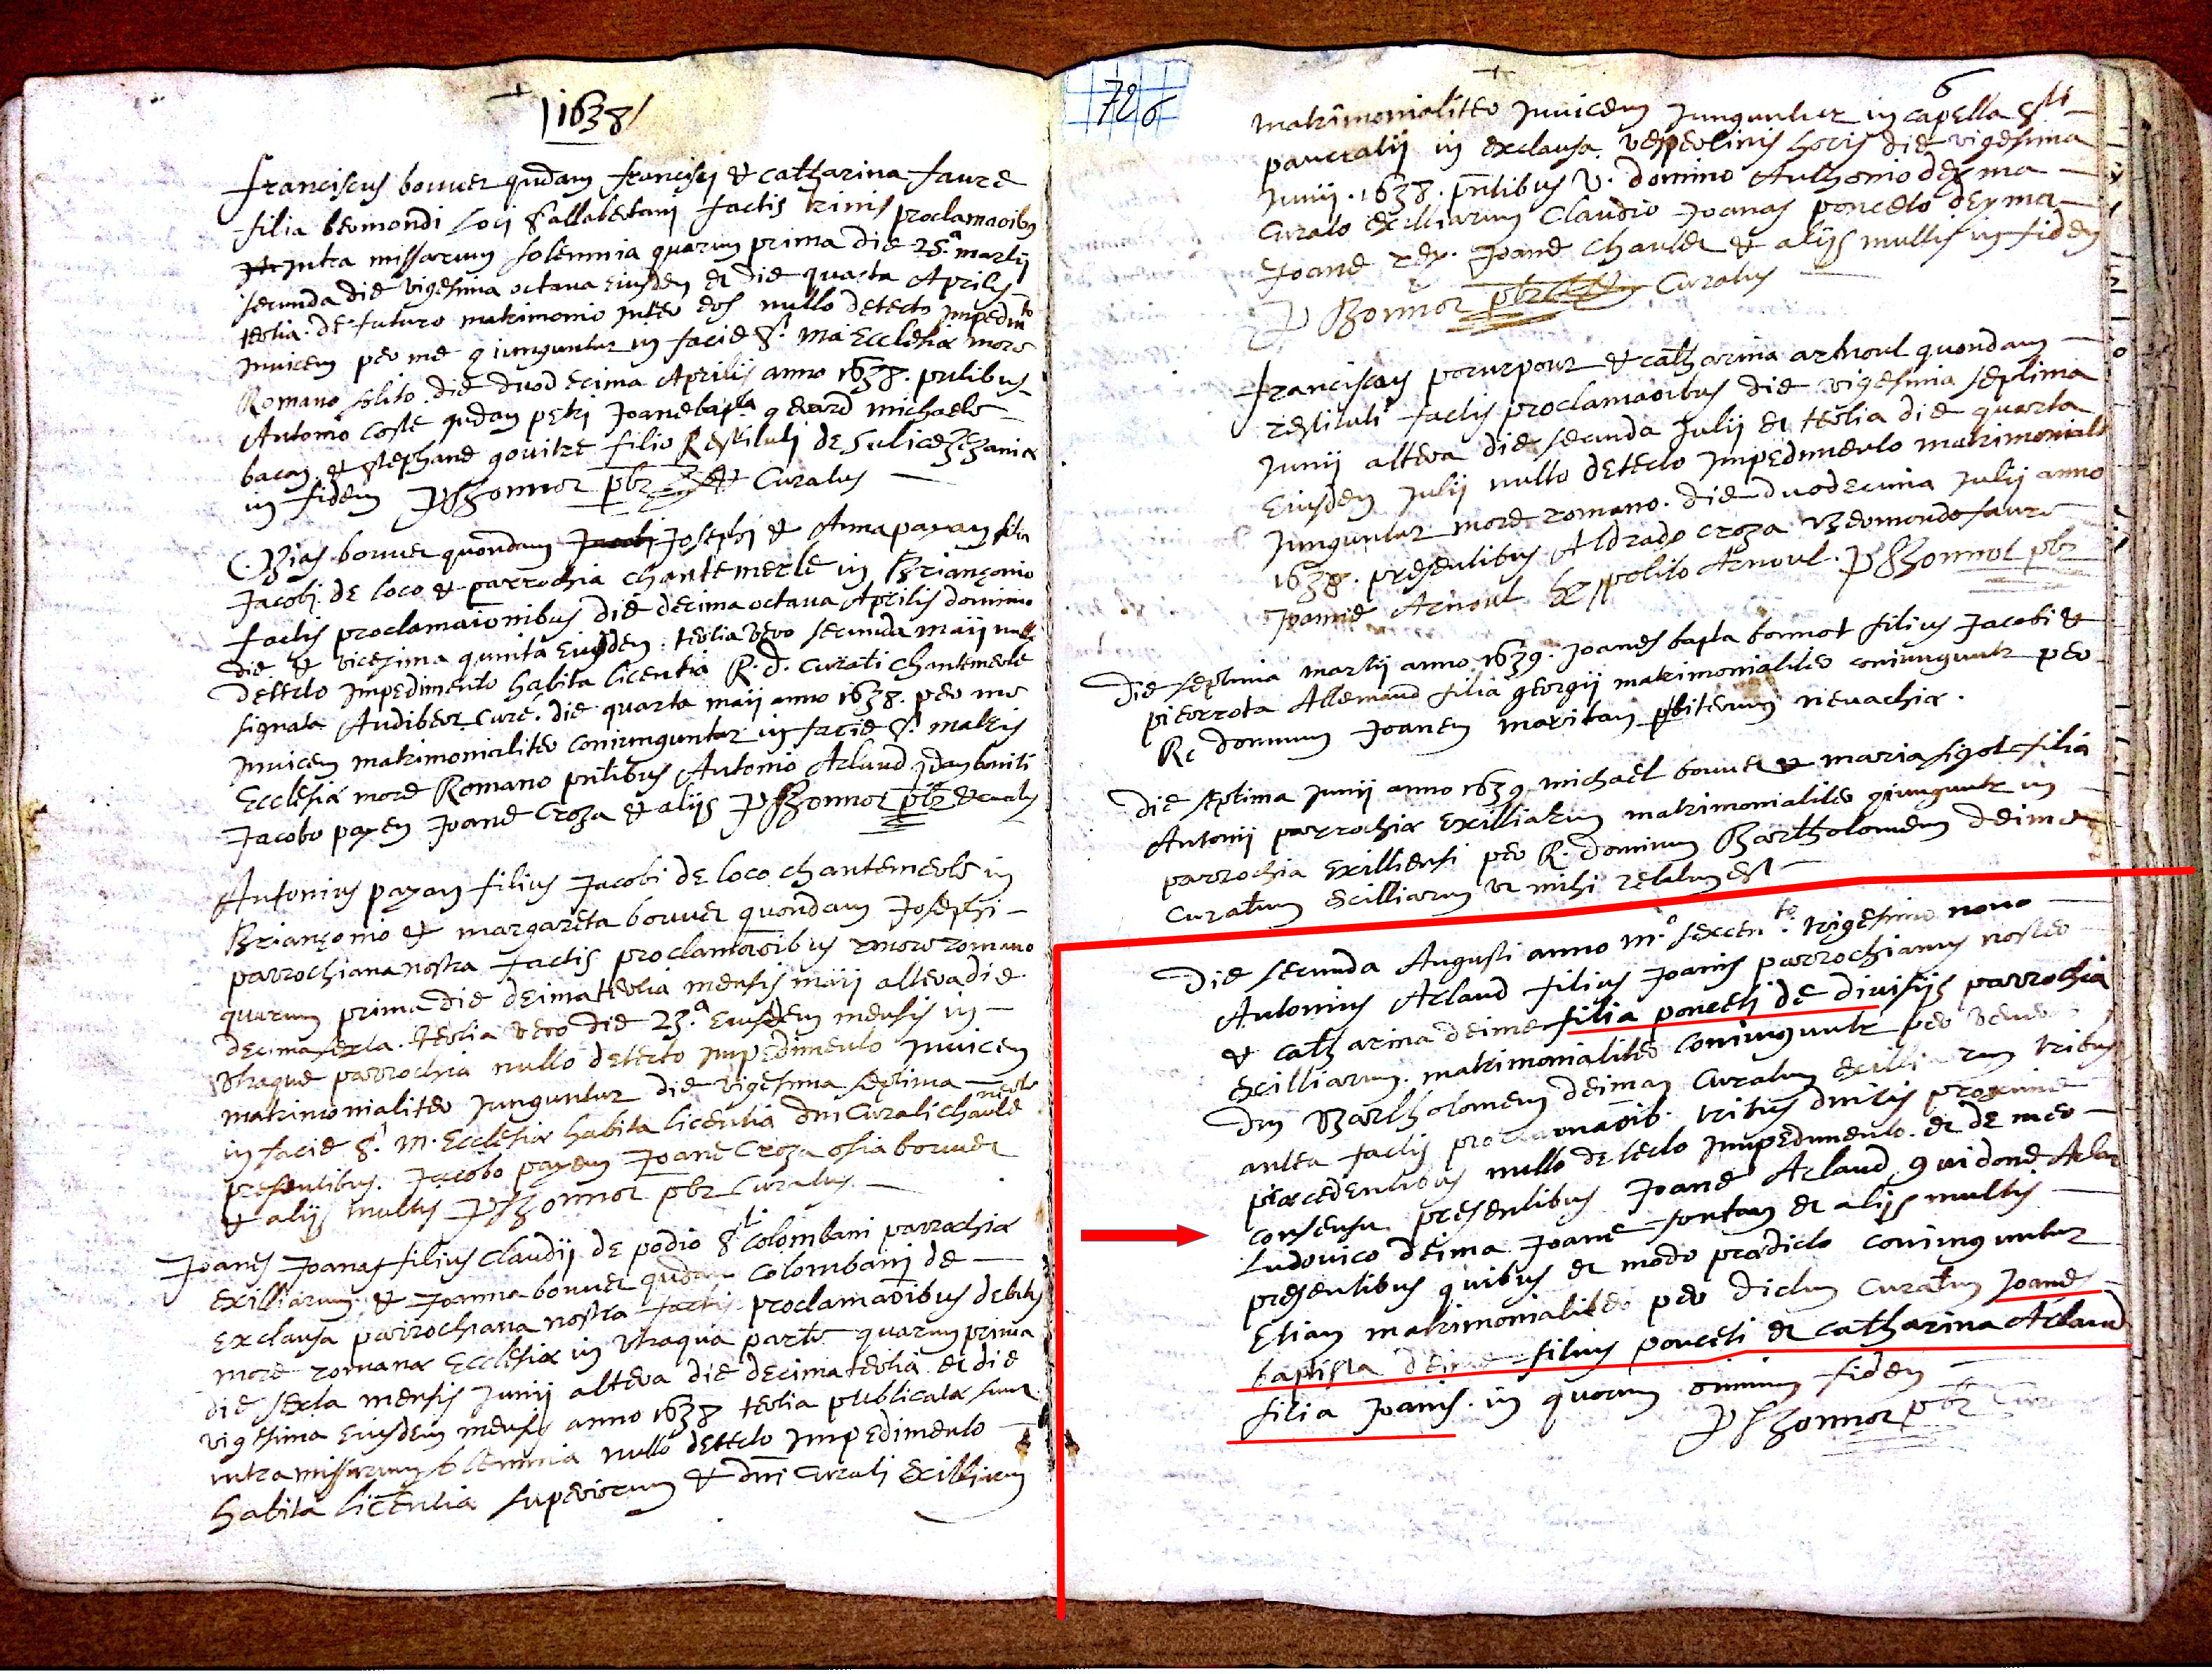 1638
franciscus bouuer qudam francisci & catharina faure
filia bermondi loci Sallabertani factis trinis proclamaoibus
intra missarum solemnia quarum prima die 25.a martii
secunda die vigesima octaua eiusdem et die quarta Aprilis
tertia de futuro matrimonio inter eos nullo detecto impedimto
inuicem per me giunguntur in facie S. ma Ecclesiæ more
Romano solito. die duodecima Aprilis anno 1638. pntibus
Antonio coste qudam petri Joanebapta geuard michaele
bacon & stephane gouitre filio Restituti de Salicezezaniæ
in fidem P Bonnot pbr & Curatus
Bias bouuer quondam Josephi & Anna payan filia
Jacobi de loco & parrochia chantemerle in Briançonio
factis proclamaionibus die decima octaua Aprilis dominio
die & vicesima quinta Eiusdem tertia vero secunda maij nullo
detecto impedimento habita licentia R. d. curati chantemerle
signata Audibert cure. die quarta maij anno 1638. per me
inuicem matrimonialiter coniunguntur in facie S. matris
Ecclesiæ more Romano pntibus Antonio Arlaud qdam
Jacobo payen Joane Croza & aliis P Bonnot pbr & curatus
Antonius payan filius Jacobi de loco chantemerle in
Briançonio & margareta bouuer quondam Josephi
parrochiana nostra factis proclamaoibus more romano
quarum prima die decima tertia mensis maij altera die
decima sexta. tertia vero die 23.a Eiusdem mensis in
vtraque parrochia nullo detecto impedimento inuicem
matrimonialiter junguntur die vigesima septima
in facie S. m. Ecclesiæ habita licentia dni Curati chantemerle
presentibus. Jacobo payen Joane Croza osia bouuer
& aliis multis P Bonnot pbr Curatus
Joanes Joanas filius Claudij de podio Sti Colombani parrochiæ
exilliarum & Joanna bouuer qudam Colombani de
exclausa parrochiana nostra factis proclamaoibus debitis
more romanæ Ecclesiæ in vtraqua parte quarum prima
die sexta mensis junij altera die decima tertia et die
vigesima Eiusdem mensis anno 1638 tertia publicata fuit
intra missarum solemnia nullo detecto impedimento
habita licentia superiorum & dni curati Exilliarum
726
6
matrimonialiter inuicem junguntur in capella Sti
pancratij in exclausa vespertinis horis die vigesima
junij. 1638. pntibus V. domino Anthonio deyma
Curato exilliarum Claudio Joanas ponceto deyma
Joane rey. Joane chaulet & aliis multis in fidem
P Bonnot pbr Curatus
franciscus pourpour & catharina arnoul quondam
restituti factis proclamaoibus die vigesima septima
junij altera die secunda julij et tertia die quarta
Eiusdem julij nullo detecto impedimento matrimoniale
junguntur more romano. die duodecima julij anno
1638. presentibus Aldrado croza Bermondo faure
Joanne Arnoul hippolito Arnoul. P Bonnot pbr
Die septima martij anno 1639. joanes bapta bonnot filius Jacobi &
pierrota Allemand filia georgij matrimonialiter coniunguntr per
Rd dominum Joanem maritan pbiterum neuachiæ.
Die septima junij anno 1639 michael bouuer & maria sigot filia
Antonij parrochiæ exilliarum matrimonialiter giunguntr in
parrochia exilliensi per R. dominum Bartholomeum deima
curatum exilliarum vt mihi relatum est
Die secunda Augusti anno m.o sexcen.to trigesimo nono
Antonius Arlaud filius Joanis parrochianus noster
& catharina deime filia ponceti de diuisijs parrochia
exilliarum. matrimonialiter coniunguntr per
dm Bartholomeum deiman Curatum exilliarum tribus
antea factis proclamaoib. tribus dnicis proxime
præcedentibus nullo detecto impedimento. et de meo
consensu presentibus Joane Arlaud guidone Arlau
Ludouico deima Joane fontan et aliis multis
presentibus quibus et modo prædicto coniunguntur
Etiam matrimonialiter per dictum curatum Joanes
baptista deime filius ponceti et catharina Arlaud
filia Joanis. in quorum omnium fidem
P Bonnot pbr